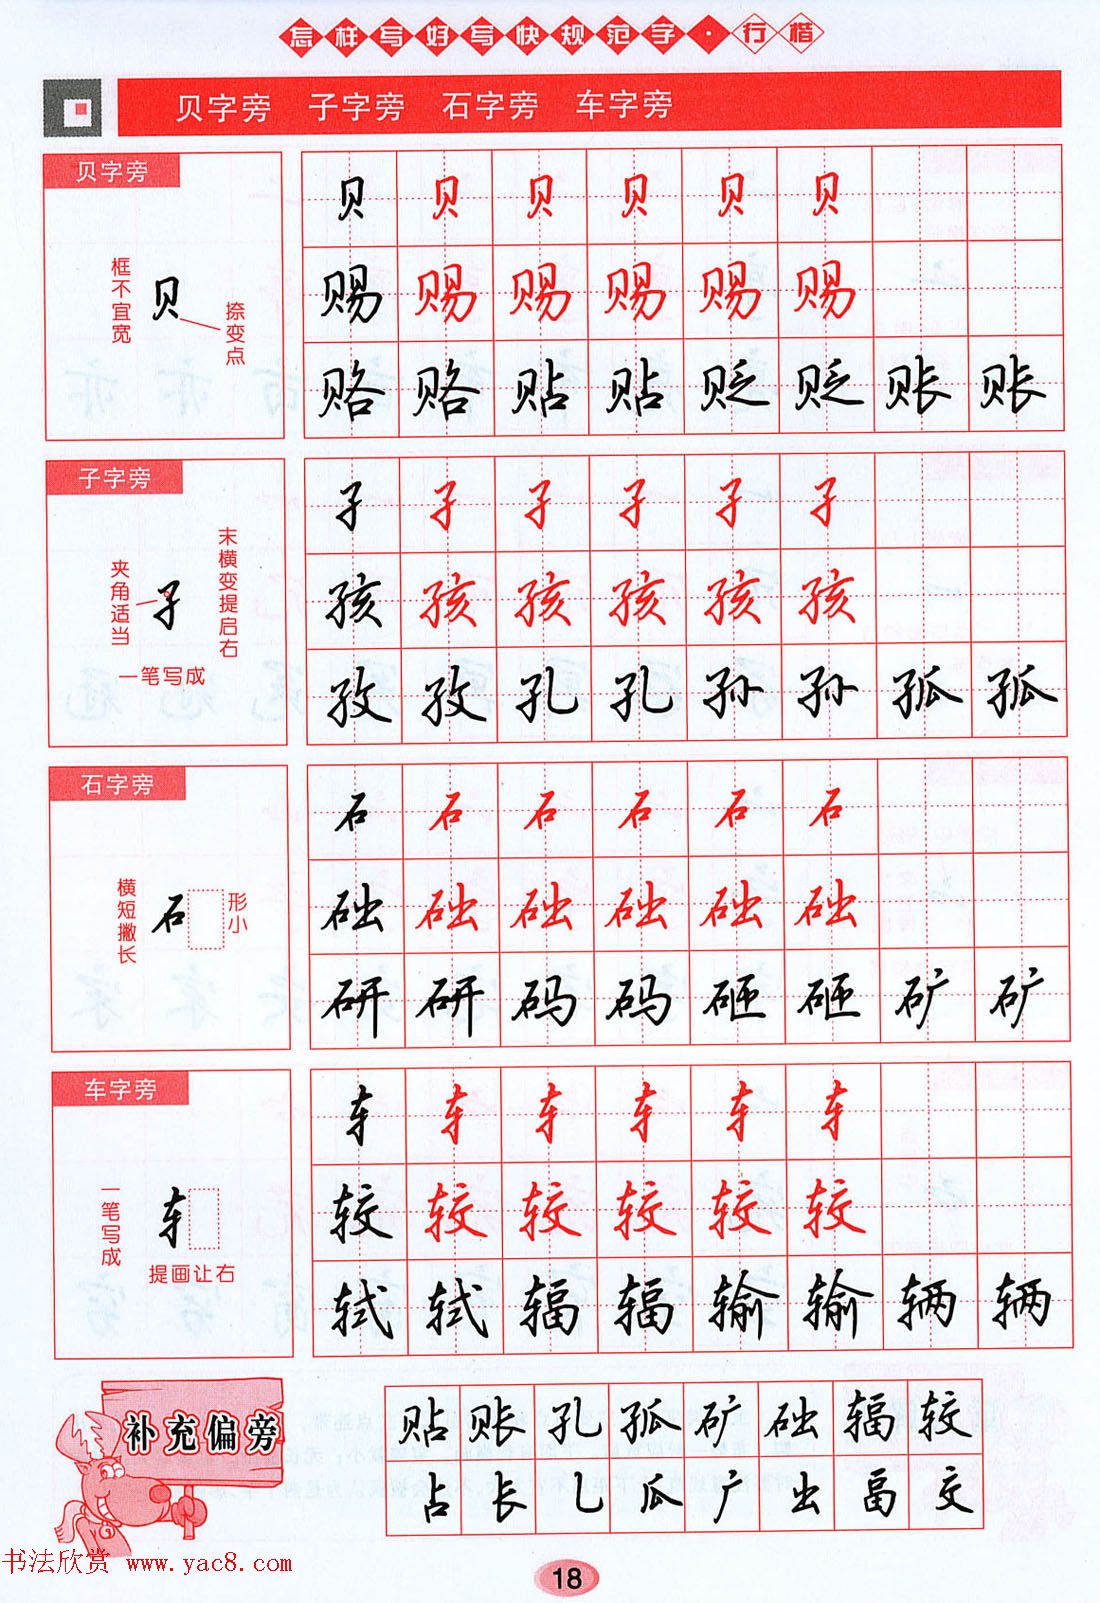 怎样写好写快规范字·行楷
贝字旁 子字旁 石字旁 车字旁
贝字旁
框不宜宽
贝
捺变点
贝 贝 贝 贝 贝 贝
赐 赐 赐 赐 赐 赐
赂 赂 贴 贴 贬 贬 账 账
子字旁
夹角适当
子
末横变提启右
一笔写成
子 子 子 子 子 子
孩 孩 孩 孩 孩 孩
孜 孜 孔 孔 孙 孙 孤 孤
石字旁
横短撇长
石
形小
石 石 石 石 石 石
础 础 础 础 础 础
研 研 码 码 砸 砸 矿 矿
车字旁
一笔写成
车
提画让右
车 车 车 车 车 车
较 较 较 较 较 较
轼 轼 辐 辐 输 输 辆 辆
补充偏旁
贴 账 孔 孤 矿 础 辐 较
占 长 乚 瓜 广 出 畐 交
书法欣赏 www.yac8.com
18